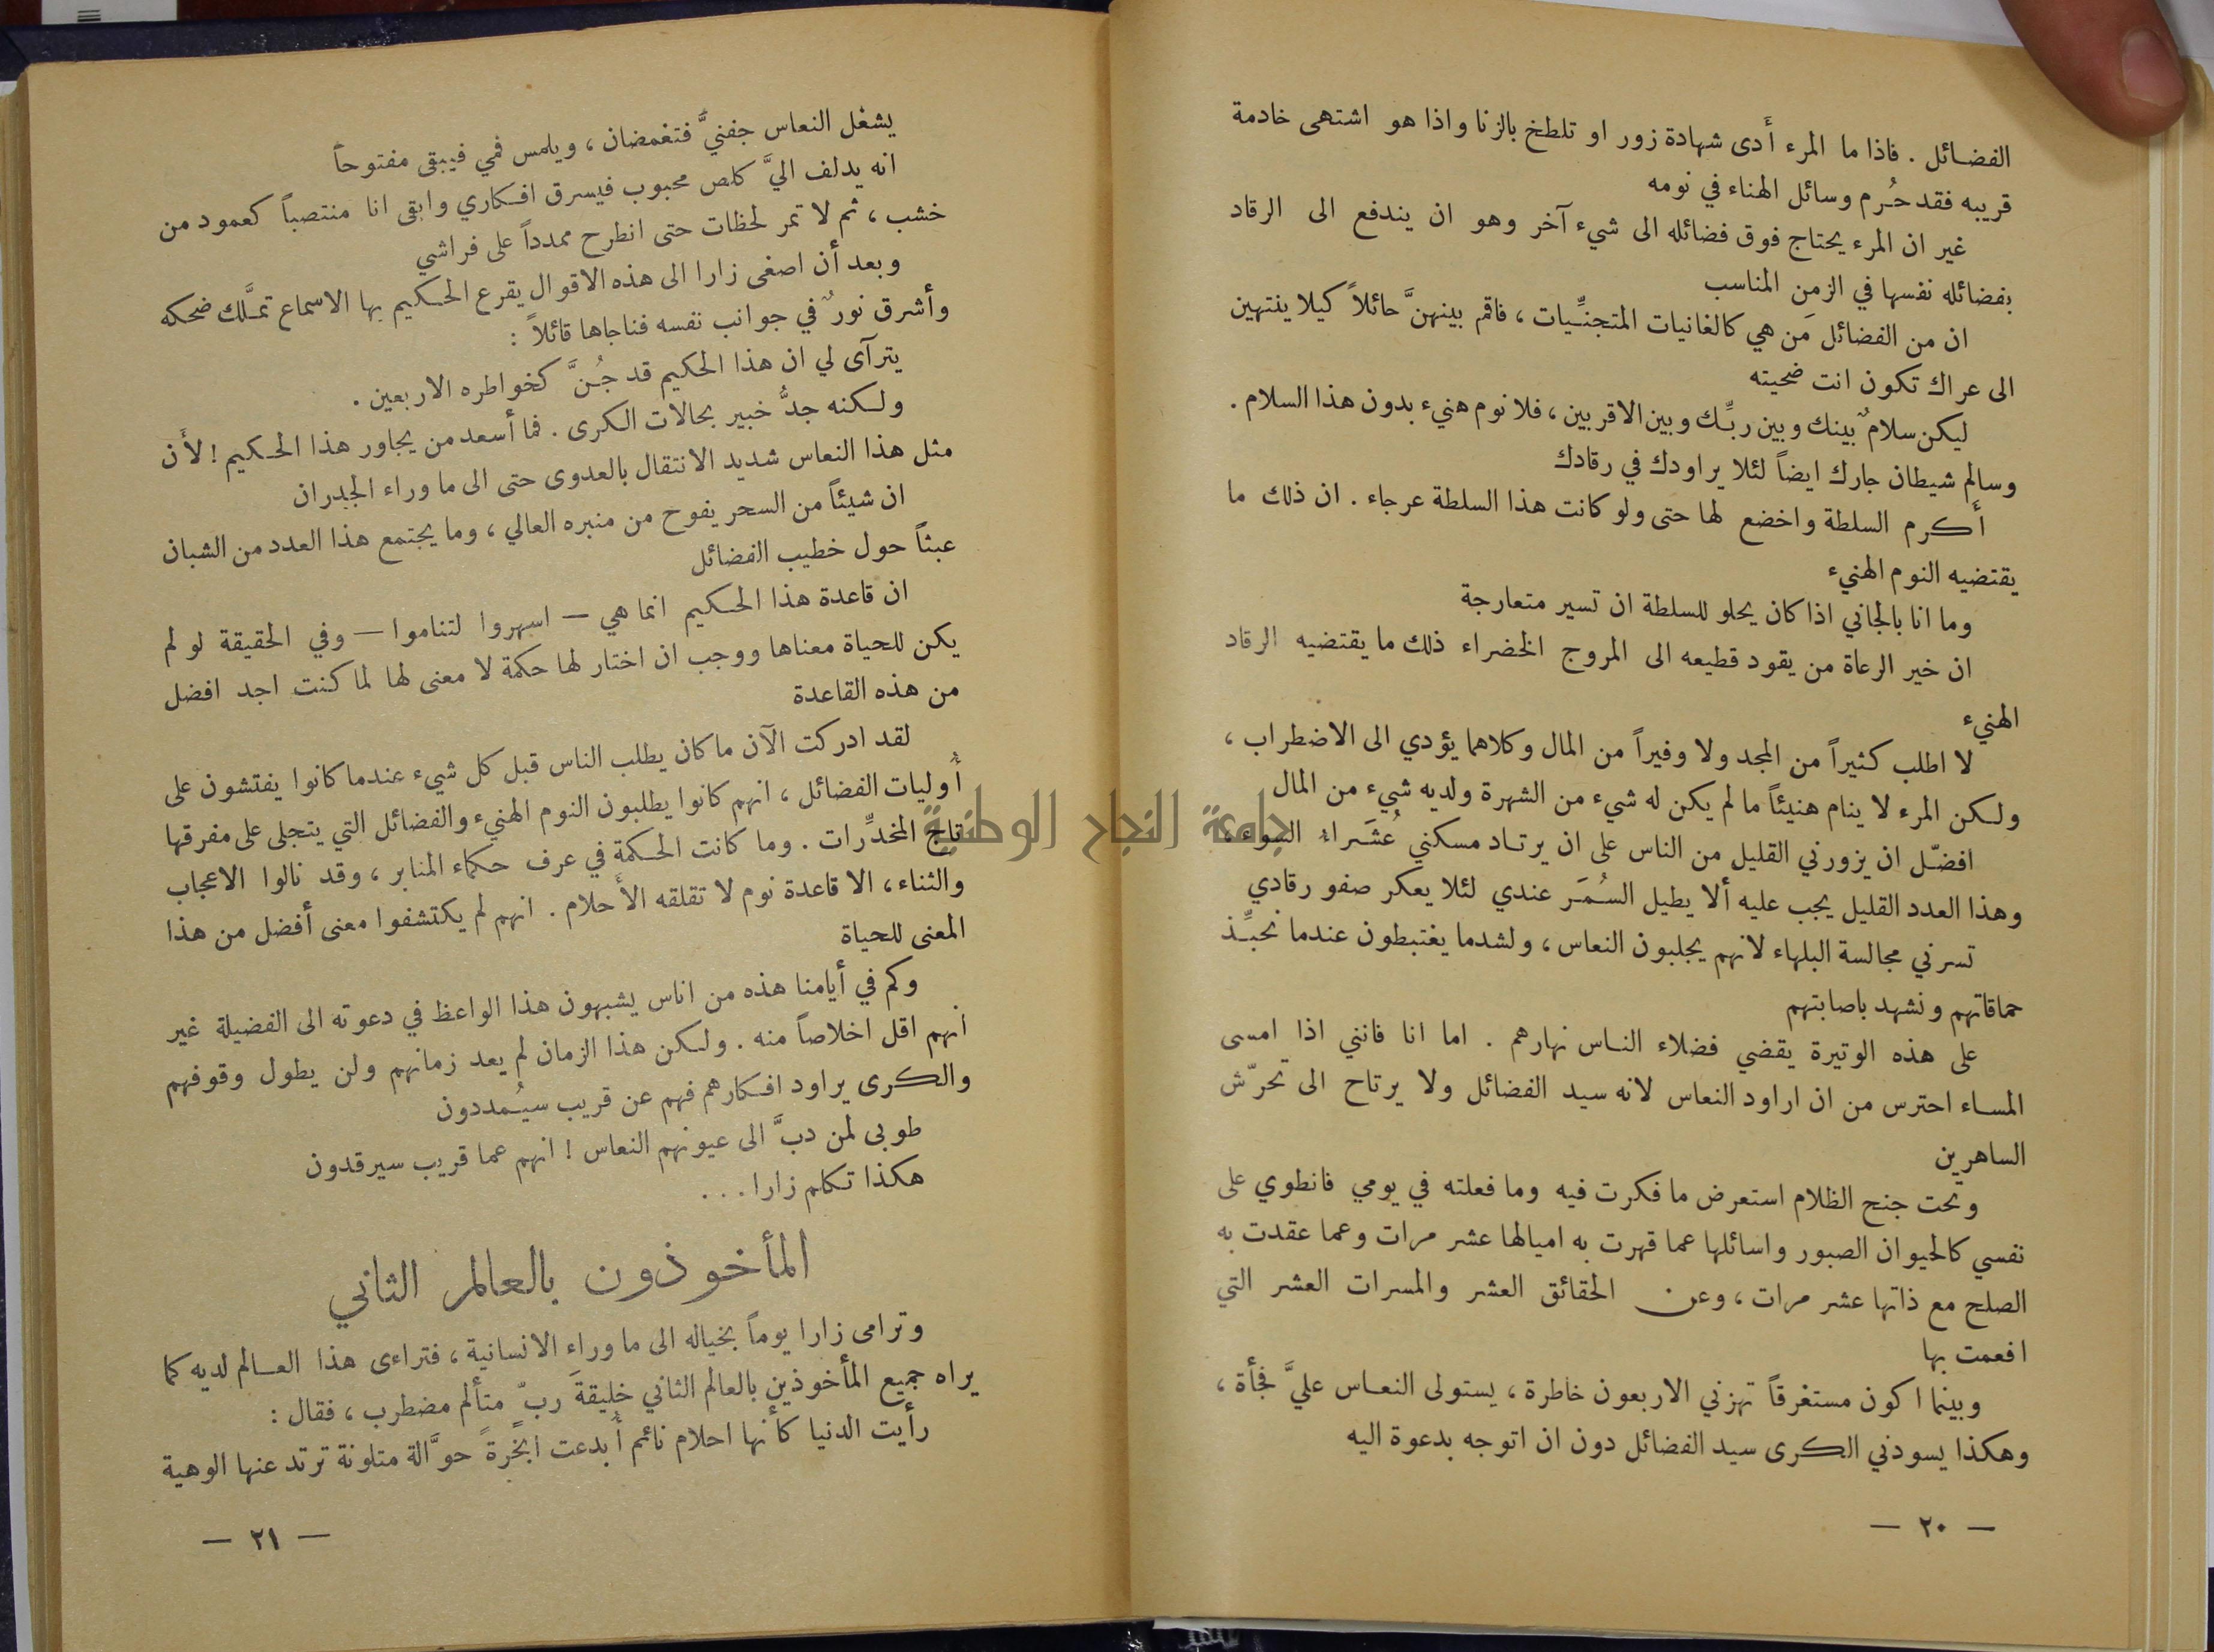 الفضائل . فاذا ما المرء أدى شهادة زور او تلطخ بالزنا واذا هو اشتهى خادمة
قريبه فقد حُرم وسائل الهناء في نومه
غير ان المرء يحتاج فوق فضائله الى شيء آخر وهو ان يندفع الى الرقاد
بفضائله نفسها في الزمن المناسب
ان من الفضائل مَن هي كالغانيات المتجنِّيات ، فاقم بينهنَّ حائلاً كيلا ينتهين
الى عراك تكون انت ضحيته
ليكن سلامٌ بينك وبين ربِّك وبين الاقربين ، فلا نوم هنيء بدون هذا السلام .
وسالم شيطان جارك ايضاً لئلا يراودك في رقادك
أكرم السلطة واخضع لها حتى ولو كانت هذا السلطة عرجاء . ان ذلك ما
يقتضيه النوم الهنيء
وما انا بالجاني اذا كان يحلو للسلطة ان تسير متعارجة
ان خير الرعاة من يقود قطيعه الى المروج الخضراء ذلك ما يقتضيه الرقاد
الهنيء
لا اطلب كثيراً من المجد ولا وفيراً من المال وكلاهما يؤدي الى الاضطراب ،
ولكن المرء لا ينام هنيئاً ما لم يكن له شيء من الشهرة ولديه شيء من المال
افضّل ان يزورني القليل من الناس على ان يرتاد مسكني عُشَراء السوء ،
وهذا العدد القليل يجب عليه ألا يطيل السُمَر عندي لئلا يعكر صفو رقادي
تسرني مجالسة البلهاء لانهم يجلبون النعاس ، ولشدما يغتبطون عندما نحبِّذ
حماقاتهم ونشهد باصابتهم
على هذه الوتيرة يقضي فضلاء الناس نهارهم . اما انا فانني اذا امسى
المساء احترس من ان اراود النعاس لانه سيد الفضائل ولا يرتاح الى تحرّش
الساهرين
وتحت جنح الظلام استعرض ما فكرت فيه وما فعلته في يومي فانطوي على
نفسي كالحيوان الصبور واسائلها عما قهرت به اميالها عشر مرات وعما عقدت به
الصلح مع ذاتها عشر مرات ، وعن الحقائق العشر والمسرات العشر التي
افعمت بها
وبينما اكون مستغرقاً تهزني الاربعون خاطرة ، يستولى النعاس عليَّ فجأة ،
وهكذا يسودني الكرى سيد الفضائل دون ان اتوجه بدعوة اليه
— ٢٠ —
يشغل النعاس جفنيَّ فتغمضان ، ويلمس فمي فيبقى مفتوحاً
انه يدلف اليَّ كلص محبوب فيسرق افكاري وابقى انا منتصباً كعمود من
خشب ، ثم لا تمر لحظات حتى انطرح ممدداً على فراشي
وبعد أن اصغى زارا الى هذه الاقوال يقرع الحكيم بها الاسماع تمَّلك ضحكه
وأشرق نورٌ في جوانب نفسه فناجاها قائلاً :
يترآى لي ان هذا الحكيم قد جُنَّ كخواطره الاربعين .
ولكنه جدُّ خبير بحالات الكرى . فما أسعد من يجاور هذا الحكيم ! لأن
مثل هذا النعاس شديد الانتقال بالعدوى حتى الى ما وراء الجدران
ان شيئاً من السحر يفوح من منبره العالي ، وما يجتمع هذا العدد من الشبان
عبثاً حول خطيب الفضائل
ان قاعدة هذا الحكيم انما هي — اسهروا لتناموا — وفي الحقيقة لو لم
يكن للحياة معناها ووجب ان اختار لها حكمة لا معنى لها لما كنت اجد افضل
من هذه القاعدة
لقد ادركت الآن ما كان يطلب الناس قبل كل شيء عندما كانوا يفتشون على
أوليات الفضائل ، انهم كانوا يطلبون النوم الهنيء والفضائل التي يتجلى على مفرقها
تاج المخدِّرات . وما كانت الحكمة في عرف حكماء المنابر ، وقد نالوا الاعجاب
والثناء ، الا قاعدة نوم لا تقلقه الأحلام . انهم لم يكتشفوا معنى أفضل من هذا
المعنى للحياة
وكم في أيامنا هذه من اناس يشبهون هذا الواعظ في دعوته الى الفضيلة غير
انهم اقل اخلاصاً منه . ولكن هذا الزمان لم يعد زمانهم ولن يطول وقوفهم
والكرى يراود افكارهم فهم عن قريب سيُمددون
طوبى لمن دبَّ الى عيونهم النعاس ! انهم عما قريب سيرقدون
هكذا تكلم زارا . . .
المأخوذون بالعالم الثاني
وترامى زارا يوماً بخياله الى ما وراء الانسانية ، فتراءى هذا العالم لديه كما
يراه جميع المأخوذين بالعالم الثاني خليقةَ ربّ متألم مضطرب ، فقال :
رأيت الدنيا كأنها احلام نائم أبدعت ابخرةً حوَّالة متلونة ترتد عنها الوهية
— ٢١ —
جامعة النجاح الوطنية